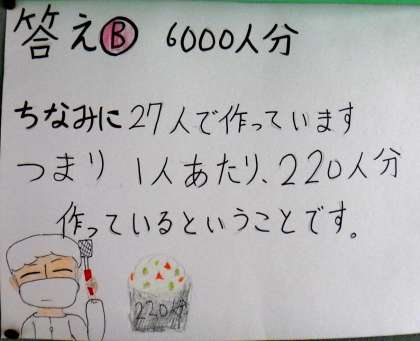 答え Ⓑ 6000人分
ちなみに27人で作っています
つまり 1人あたり、220人分
作っているということです。
220人分